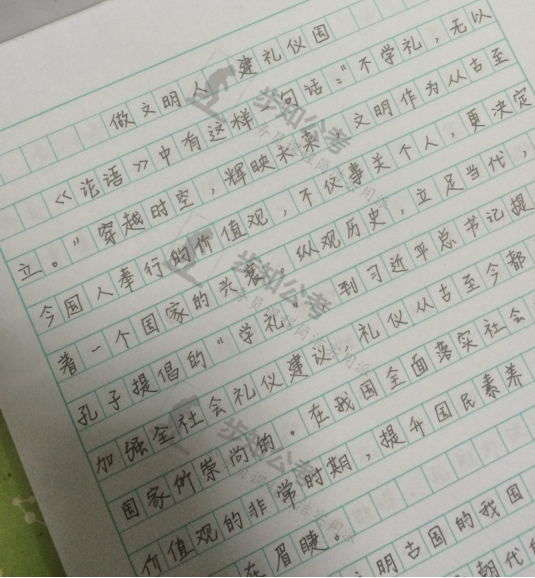 做文明人 建礼仪国
《论语》中有这样一句话："不学礼,无以
立。"穿越时空,辉映未来,文明作为从古至
今国人奉行的价值观,不仅事关个人,更决定
着一个国家的兴衰。纵观历史,立足当代,
孔子提倡的"学礼"到习近平总书记提
加强全社会礼仪建议,礼仪从古至今都
国家所崇尚的。在我国全面落实社会
价值观的非常时期,提升国民素养
在眉睫。
明古国的我国
朝代
步知公考
步知公考
步知公考